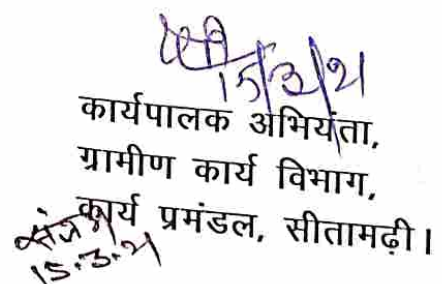 15/3/21
कार्यपालक अभियंता,
ग्रामीण कार्य विभाग,
कार्य प्रमंडल, सीतामढ़ी।
15.3.21